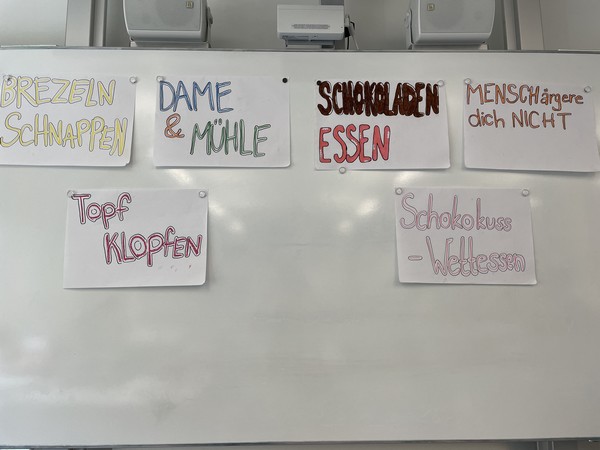 BREZELN
SCHNAPPEN
DAME
& MÜHLE
SCHOKOLADEN
ESSEN
MENSCHärgere
dich NICHT
Topf
KLOPfEN
Schokokuss
- Wettessen